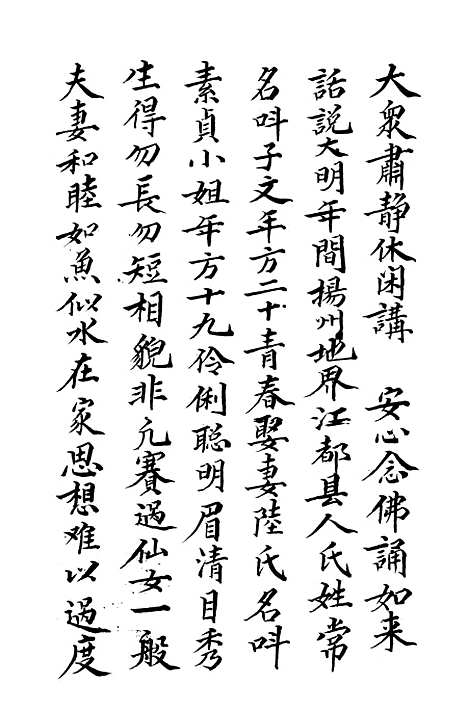 大衆肅靜休闲講　安心念佛誦如来
話說大明年間揚州地界江都县人氏姓常
名呌子文年方二十青春娶妻陸氏名呌
素貞小姐年方十九伶俐聪明眉清目秀
生得勿長勿短相貌非凢賽過仙女一般
夫妻和睦如魚似水在家思想难以過度